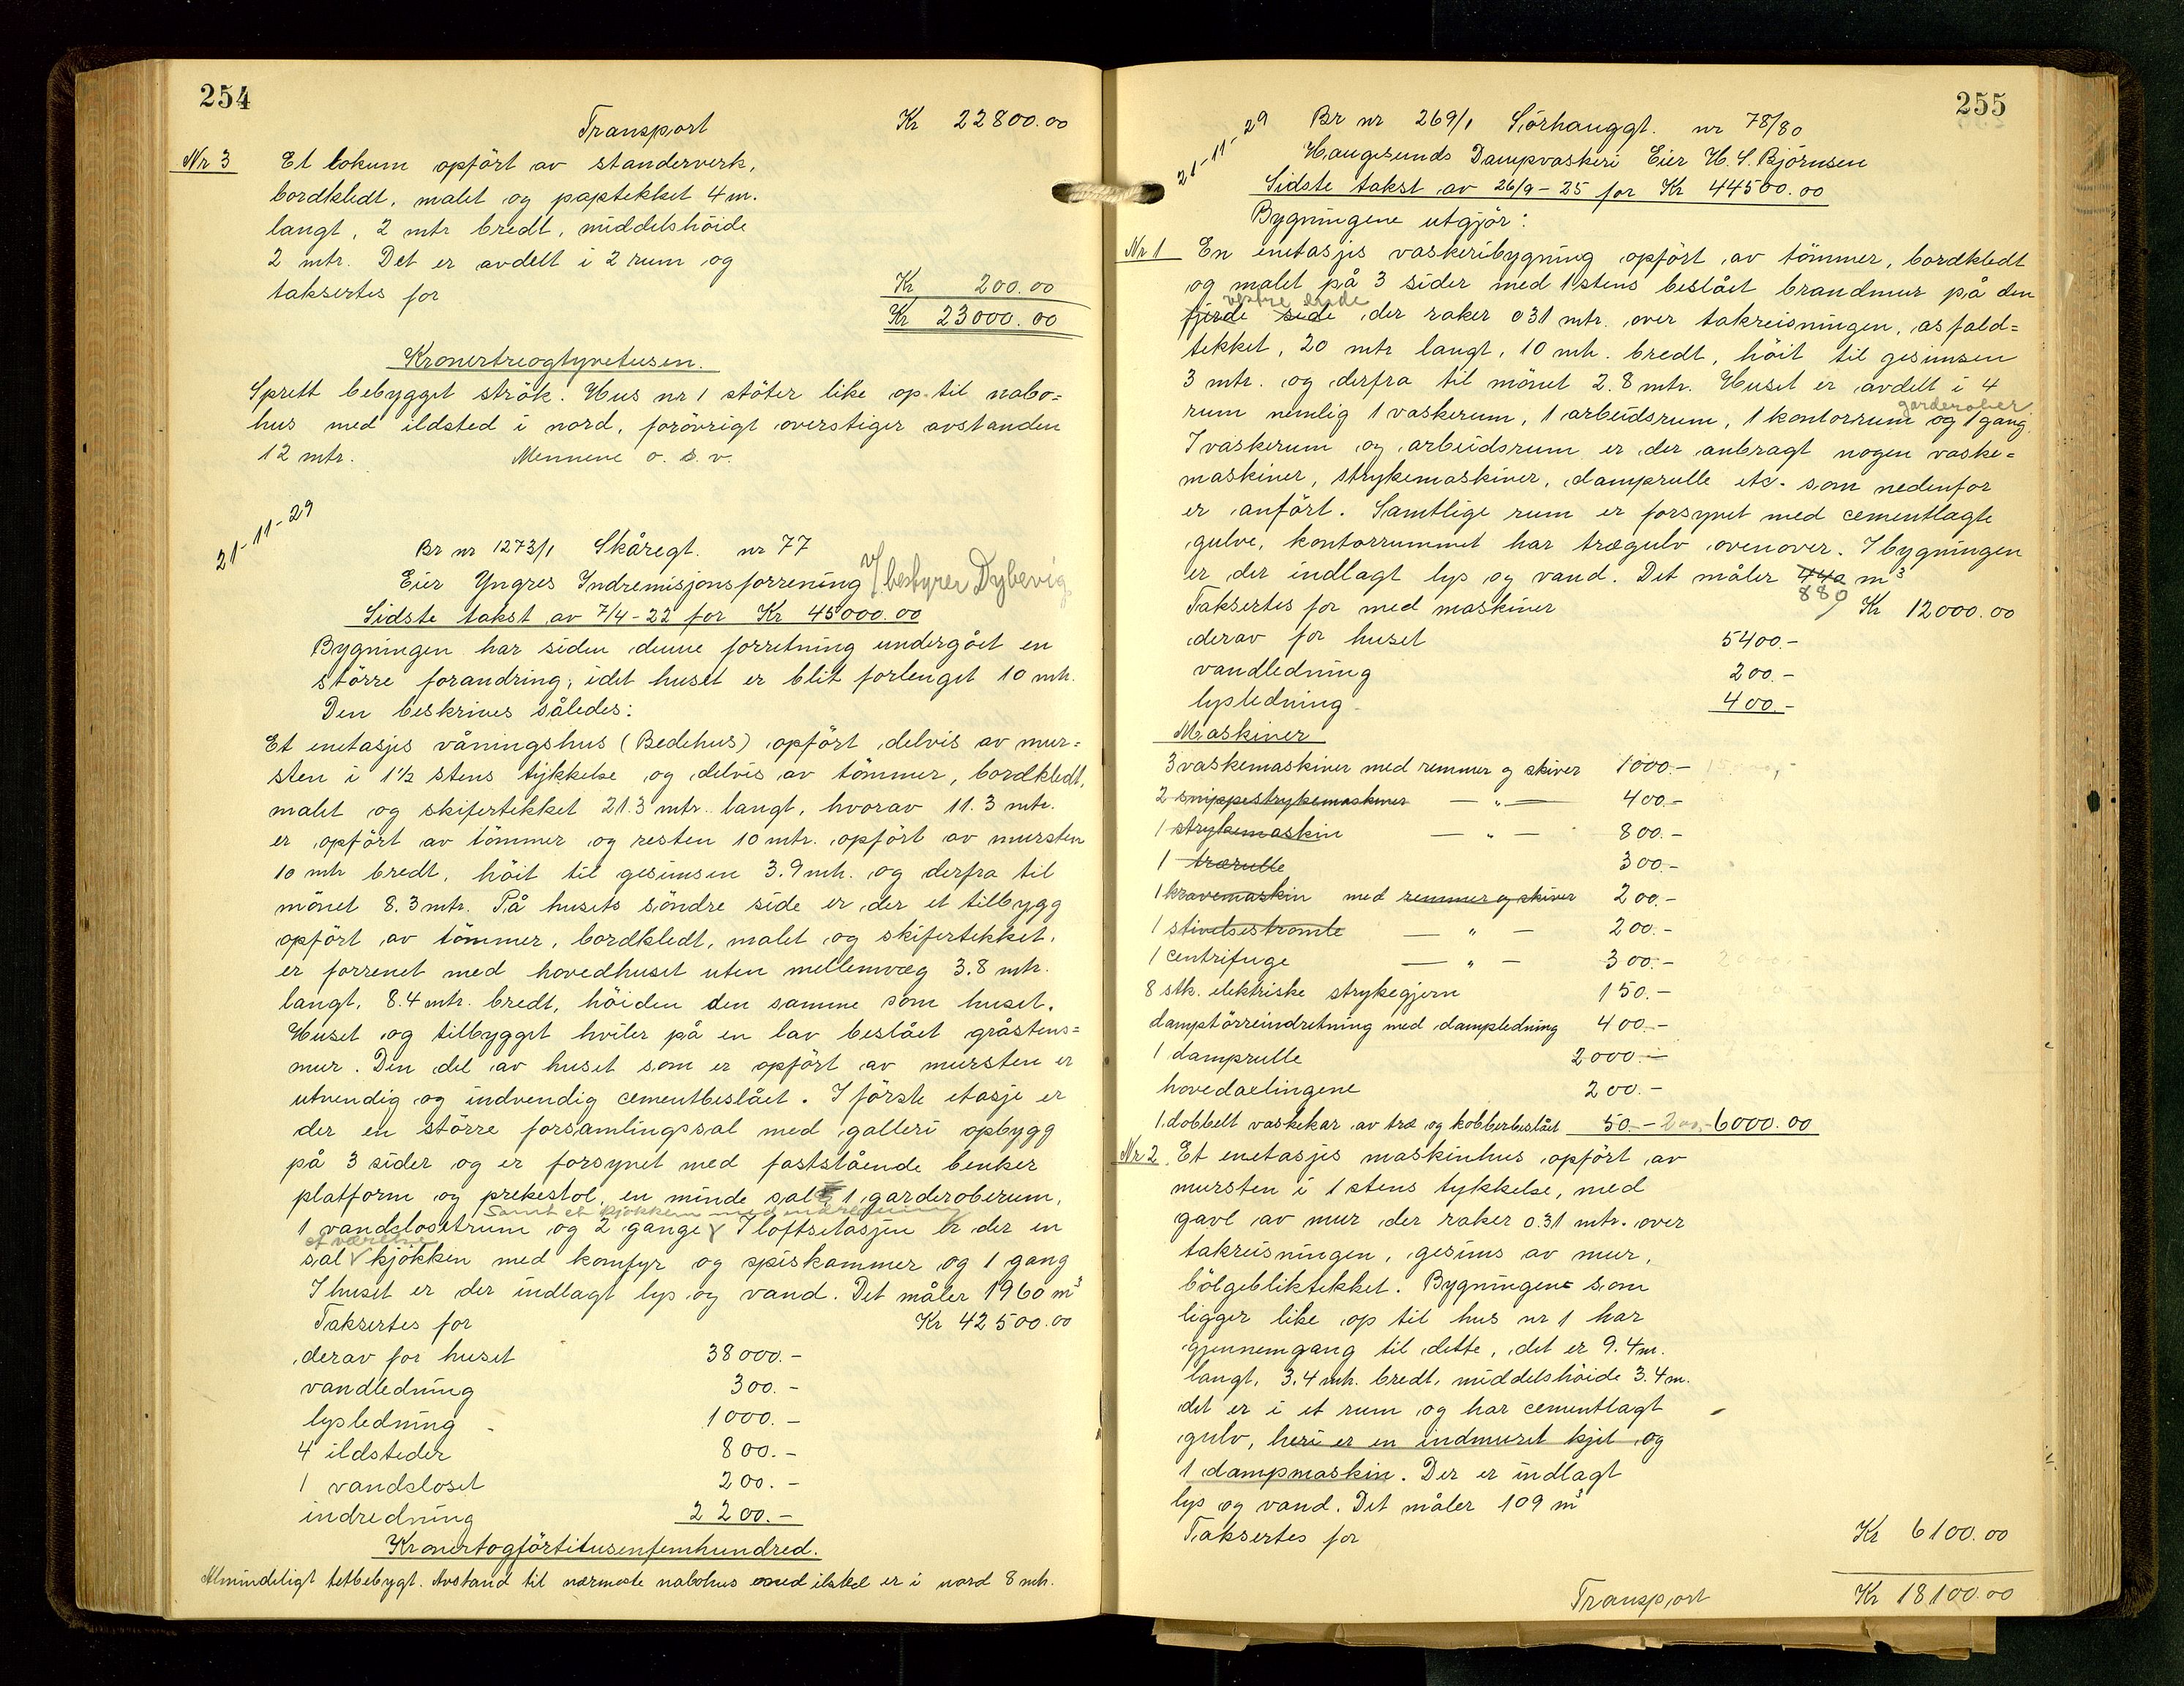 254
Transport Kr 22800.00
Nr 3 Et lokum opfört av standerverk,
bordkledt, malet og paptekket 4 m.
langt, 2 mtr bredt, middelshöide
2 mtr. Det er avdelt i 2 rum og
taksertes for Kr 200.00
Kr 23000.00
Kronertreogtyvetusen.
Sprett bebygget strök. Hus nr 1 stöter like op til nabo=
hus med ildsted i nord, forövrigt overstiger avstanden
12 mtr. Mennene o. s. v.
21-11-29
Br nr 1273/1 Skåregt. nr 77
Eier Yngres Indremisjonsforrening v/ bestyrer Dybevig
Sidste takst av 7/4-22 for Kr 45000.00
Bygningen har siden denne forretning undergået en
större forandring, idet huset er blit forlenget 10 mtr.
Den beskrives således:
Et enetasjes våningshus (Bedehus) opfört delvis av mur=
sten i 1½ stens tykkelse og delvis av tömmer, bordkledt,
malet og skifertekket 21.3 mtr. langt, hvorav 11.3 mtr.
er opfört av tömmer og resten 10 mtr. opfört av mursten
10 mtr bredt, höit til gesimsen 3.9 mtr. og derfra til
mönet 8.3 mtr. På husets söndre side er der et tilbygg
opfört av tömmer, bordkledt, malet og skifertekket,
er forrenet med hovedhuset uten mellemvæg 3.8 mtr.
langt, 8.4 mtr. bredt, höiden den samme som huset.
Huset og tilbygget hviler på en lav beslået gråstens=
mur. Den del av huset som er opfört av mursten er
utvendig og indvendig cementbeslået. I förste etasje er
der en större forsamlingssal med galleri opbygg
på 3 sider og er forsynet med faststående benker
platform og prekestol, en minde sal 1 garderoberum,
samt et kjökken med indredning
1 vandclosetrum og 2 gange I loftsetasjen er der en
et værelse
sal kjökken med komfyr og spiskammer og 1 gang
I huset er der indlagt lys og vand. Det måler 1960 m³
Taksertes for Kr 42500.00
derav for huset 38000.-
vandledning 300.-
lysledning 1000.-
4 ildsteder 800.-
1 vandcloset 200.-
indredning 2200.-
Kronertogförtitusenfemhundred.
Almindeligt tetbebygt. Avstand til nærmeste nabohus med ilsted er i nord 8 mtr.
255
21-11-29
Br nr 269/1 Sörhauggt. nr 78/80
Haugesunds Dampvaskeri Eier H. S. Björnsen
Sidste takst av 26/9-25 for Kr 44500.00
Bygningene utgjör:
Nr 1 En enetasjes vaskeribygning opfört av tömmer, bordkledt
og malet på 3 sider med 1 stens beslået brandmur på den
vestre ende
fjerde side der raker 031 mtr. over takreisningen, asfald=
tekket, 20 mtr langt, 10 mtr. bredt, höit til gesimsen
3 mtr. og derfra til mönet 2.8 mtr. Huset er avdelt i 4
garderober
rum nemlig 1 vaskerum, 1 arbeidsrum, 1 kontorrum og 1 gang.
I vaskerum og arbeidsrum er der anbragt nogen vaske=
maskiner, strykemaskiner, damprulle etc. som nedenfor
er anfört. Samtlige rum er forsynet med cementlagte
gulve, kontorrummet har trægulv ovenover. I bygningen
er der indlagt lys og vand. Det måler 440 m³
880
Taksertes for med maskiner Kr 12000.00
derav for huset 5400.-
vandledning 200.-
lysledning 400.-
Maskiner
3 vaskemaskiner med remmer og skiver 1000.-
2 snippestrykemaskiner — " — 400.-
1 strykemaskin — " — 800.-
1 trærulle 300.-
1 kravemaskin med remmer og skiver 200.-
1 stivelsestromle — " — 200.-
1 centrifuge — " — 300.- 2000.-
8 stk. elektriske strykegjern 150.-
damptörreindretning med dampledning 400.-
1 damprulle 2000.-
hovedaelingene 200.-
1 dobbelt vaskekar av træ og kobberbeslået 50.- 200.- 6000.00
Nr 2 Et enetasjes maskinhus opfört av
mursten i 1 stens tykkelse, med
gavl av mur der raker 0.31 mtr. over
takreisningen, gesims av mur,
bölgebliktekket. Bygningene som
ligger like op til hus nr 1 har
gjennemgang til dette, det er 9.4 m.
langt, 3.4 mtr. bredt, middelshöide 3.4 m.
det er i et rum og har cementlagt
gulv, heri er en indmuret kjel og
1 dampmaskin. Der er indlagt
lys og vand. Det måler 109 m³
Taksertes for Kr 6100.00
Transport Kr 18100.00